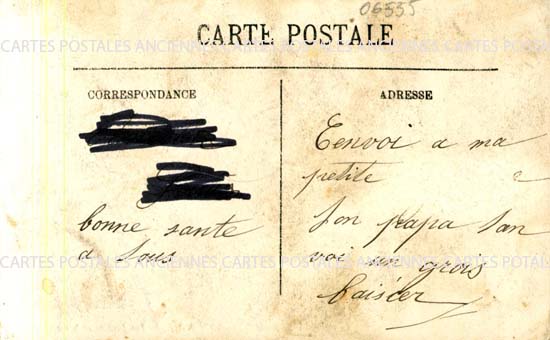 06535
CARTE POSTALE
CARTES POSTALES ANCIENNES CARTES POSTALES ANCIENNES CARTES POSTAL
CORRESPONDANCE
bonne sante
a tous
ADRESSE
envoi a ma
petite
Ton papa
voi un gros
baiser
CARTES POSTALES ANCIENNES CARTES POSTALES ANCIENNES CARTES POTAL